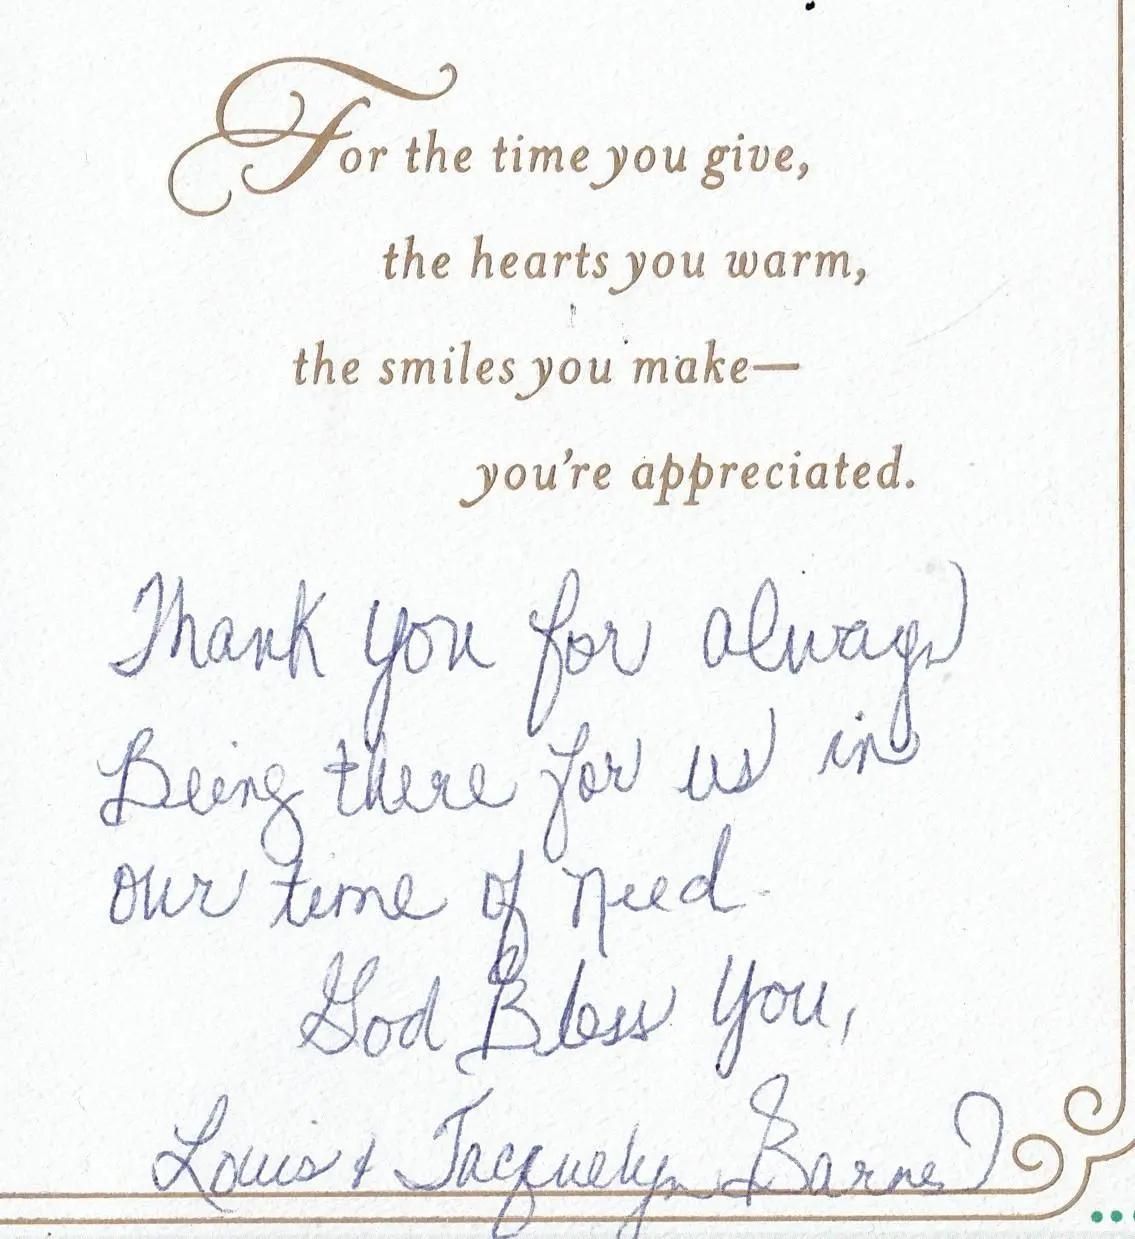 For the time you give,
the hearts you warm,
the smiles you make—
you're appreciated.
Thank you for always
Being there for us in
our time of need.
God Bless You,
Louis & Jacquelyn Barnes